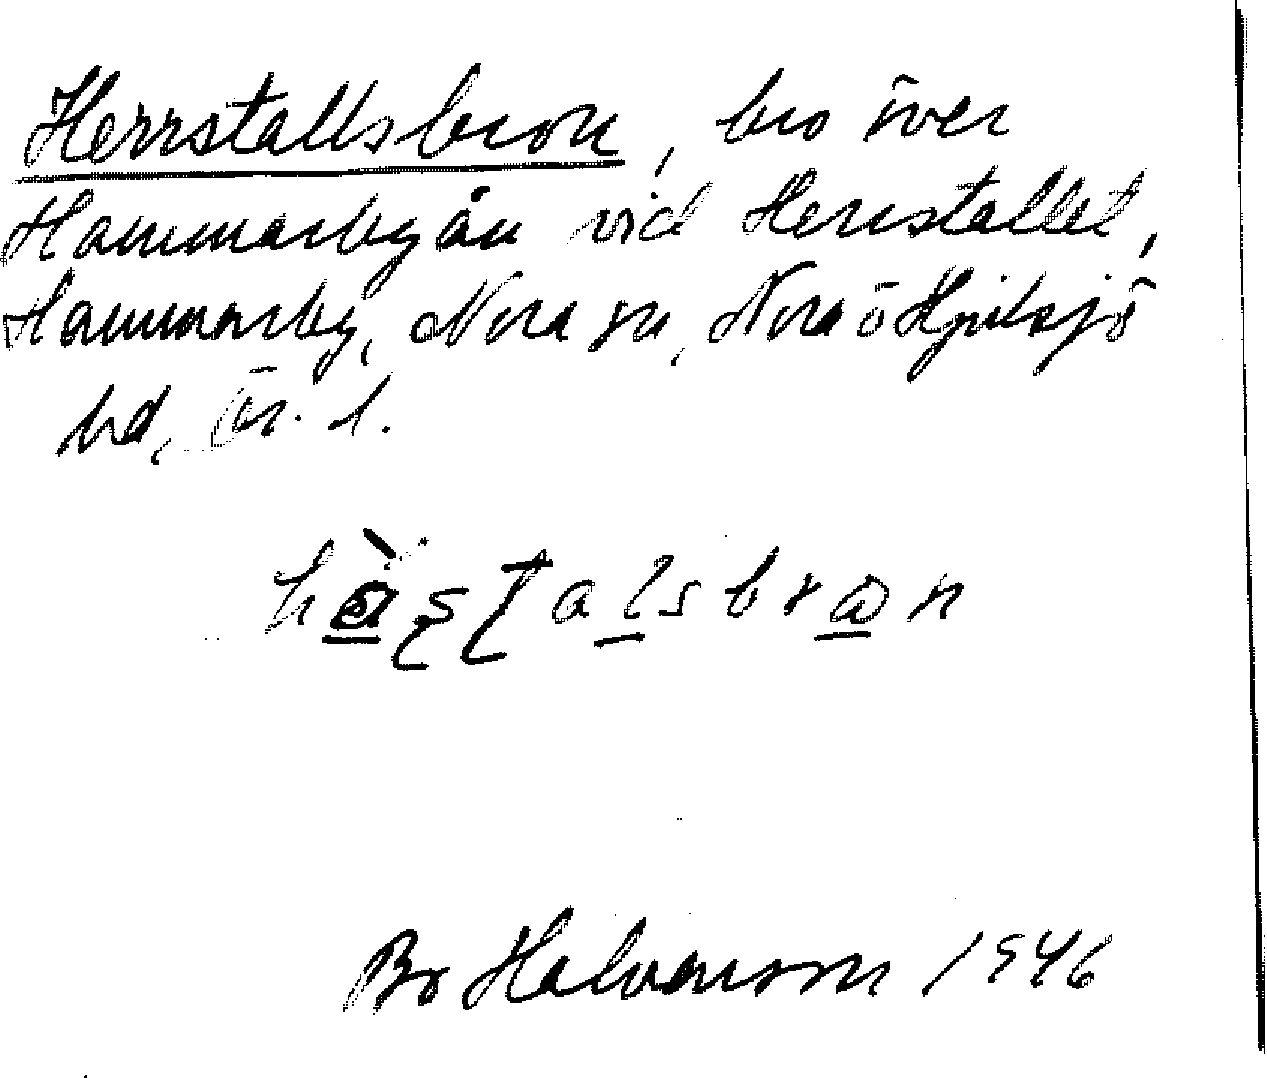 Herrstallsbron, bro över
Hammarbyån vid Herrstallet,
Hammarby, Nora sn, Nora o Hjulsjö
bd, Ör. l.
Bo Halvarsson 1946